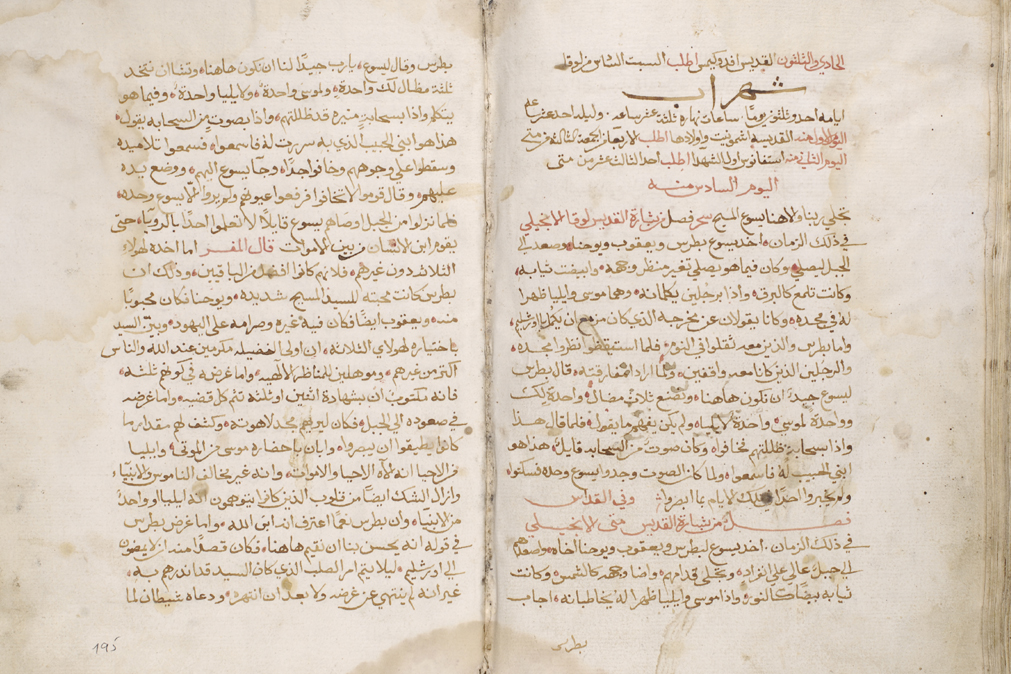 الحادي والثلثون القديس افدوكيمس اطلب السبت السادس من لوقا
شهر اب
ايامه احد وثلثون يوما ساعات نهاره ثلثة عشر ساعه وليله احد عشر ساعه
اليوم الاول منه القديسه اشمونيت واولادها اطلب الاربعا من الجمعه الثالثه من متى
اليوم الثاني منه استفانوس اول الشهدا اطلب احد الثالث عشر من متى
اليوم السادس منه
تجلي ربنا والاهنا يسوع المسيح سحر فصل من بشارة القديس لوقا الانجيلي
في ذلك الزمان، اخذ يسوع بطرس ويعقوب ويوحنا وصعد الي
الجبل ليصلي وكان فيما هو يصلي تغير منظر وجهه وابيضت ثيابه
وكانت تلمع كالبرق واذا برجلين يكلمانه وهما موسى وايليا ظهرا
له في مجده وكانا يقولان عن مخرجه الذي كان مزمع ان يكمل باورشليم
واما بطرس والذين معه ثقلوا في النوم فلما استيقظوا نظروا مجده
والرجلين الذين كانا معه واقفين ولما ارادا مفارقته قال بطرس
ليسوع جيد ان نكون هاهنا ونصنع ثلاث مضال واحدة لك
وواحدة لموسى وواحدة لايليا ولم يكن يفهم ما يقول فلما قال هذا
واذا بسحابه ظللتهم فخافوا وكان صوت من السحابه قايلا هذا هو
ابني الحبيب له فاسمعوا ولما كان الصوت وجدوا يسوع وحده فسكتوا
ولم يخبروا احدا في تلك الايام بما ابصروا وفي القداس
فصل من بشارة القديس متى الانجيلي
في ذلك الزمان، اخذ يسوع لبطرس ويعقوب ويوحنا اخاه واصعدهم
الي جبل عالي علي انفراد وتجلي قدامهم واضا وجهه كالشمس وكانت
ثيابه بيضا كالنور واذا موسى وايليا ظهرا له يخاطبانه اجاب
بطرس
بطرس وقال ليسوع يارب جيدا لنا ان نكون هاهنا وتشا ان نتخد
ثلثة مظال لك واحدة ولموسى واحدة ولايليا واحدة وفيما هو
يتكلم واذا بسحابه منيره قد ظللتهم واذا بصوت من السحابه يقول
هذا هو ابني الحبيب الذي به سررت له فاسمعوا فسمعوا تلاميذه
وسقطوا علي وجوههم وخافوا جدا وجا يسوع اليهم ووضع يده
عليهم وقال قوموا لا تخافوا فرفعوا عيونهم ولم يروا الا يسوع وحده
فلما نزلوا من الجبل اوصاهم يسوع قايلا لا تعلموا احدا بالرويا حتى
يقوم ابن الانسان من بين الاموات قال المفسر اما اخده لهولاء
الثلاثه دون غيرهم فلانهم كانوا افضل من الباقيين وذلك ان
بطرس كانت محبته للسيد المسيح شديده ويوحنا فكان محبوبا
منه ويعقوب ايضا فكان فيه غيره وصرامه علي اليهود وبين السيد
باختياره لهولاي الثلاثه ان اولي الفضيله مكرمين عند الله والناس
اكثر من غيرهم وموهلين للمناظر الالهيه واما غرضه في كونهم ثلثه
فانه مكتوب ان بشهادة اثنين او ثلثه تتم كل قضيه واما غرضه
في صعوده الي الجبل فكان ليريهم مجد لاهوته وكشف لهم مقدار ما
كانوا يطيقوا ان يبصروا وابان باحضاره موسى من الموتى وايليا
من الاحيا انه الاه الاحيا والاموات وانه غير مخالف الناموس والانبياء
وازال الشك ايضا من قلوب الذين كانوا يتوهمون انه ايليا او واحد
من الانبياء وان بطرس نعما اعترف انه ابن الله واما غرض بطرس
في قوله انه يحسن بنا ان نقيم هاهنا فكان قصدا منه ان لا يمضون
الي اورشليم ليلا يتم امر الصلب الذي كان السيد قد انذرهم به
غير انه لم ينتهي عن غرضه ولا بعد ان انتهره ودعاه شيطان لما
195